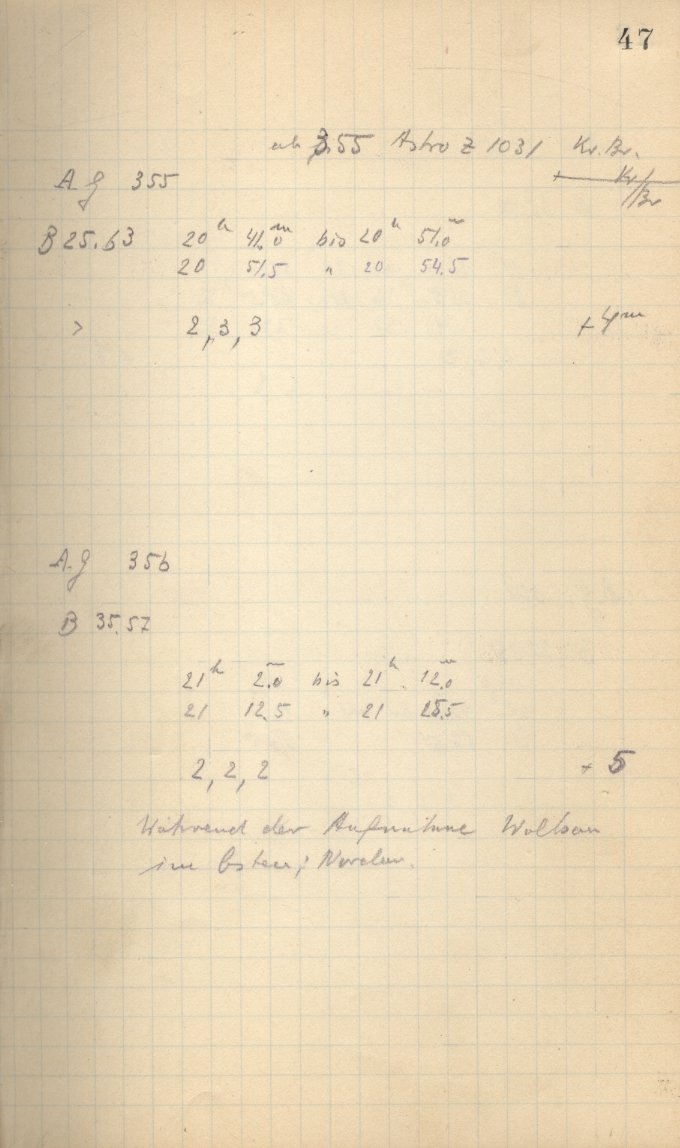 47
ab 355 Astro Z 1031 Kr. Br.
A.G 355 Kr/Br
B 25.63 20h 41.0m bis 20h 51.0m
20 51.5 " 20 54.5
> 2, 3, 3 +4m
A.G 356
B 35.57
21h 2.0m bis 21h 12.0m
21 12.5 " 21 15.5
2, 2, 2 + 5
Während der Aufnahme Wolken
im Osten, Norden.